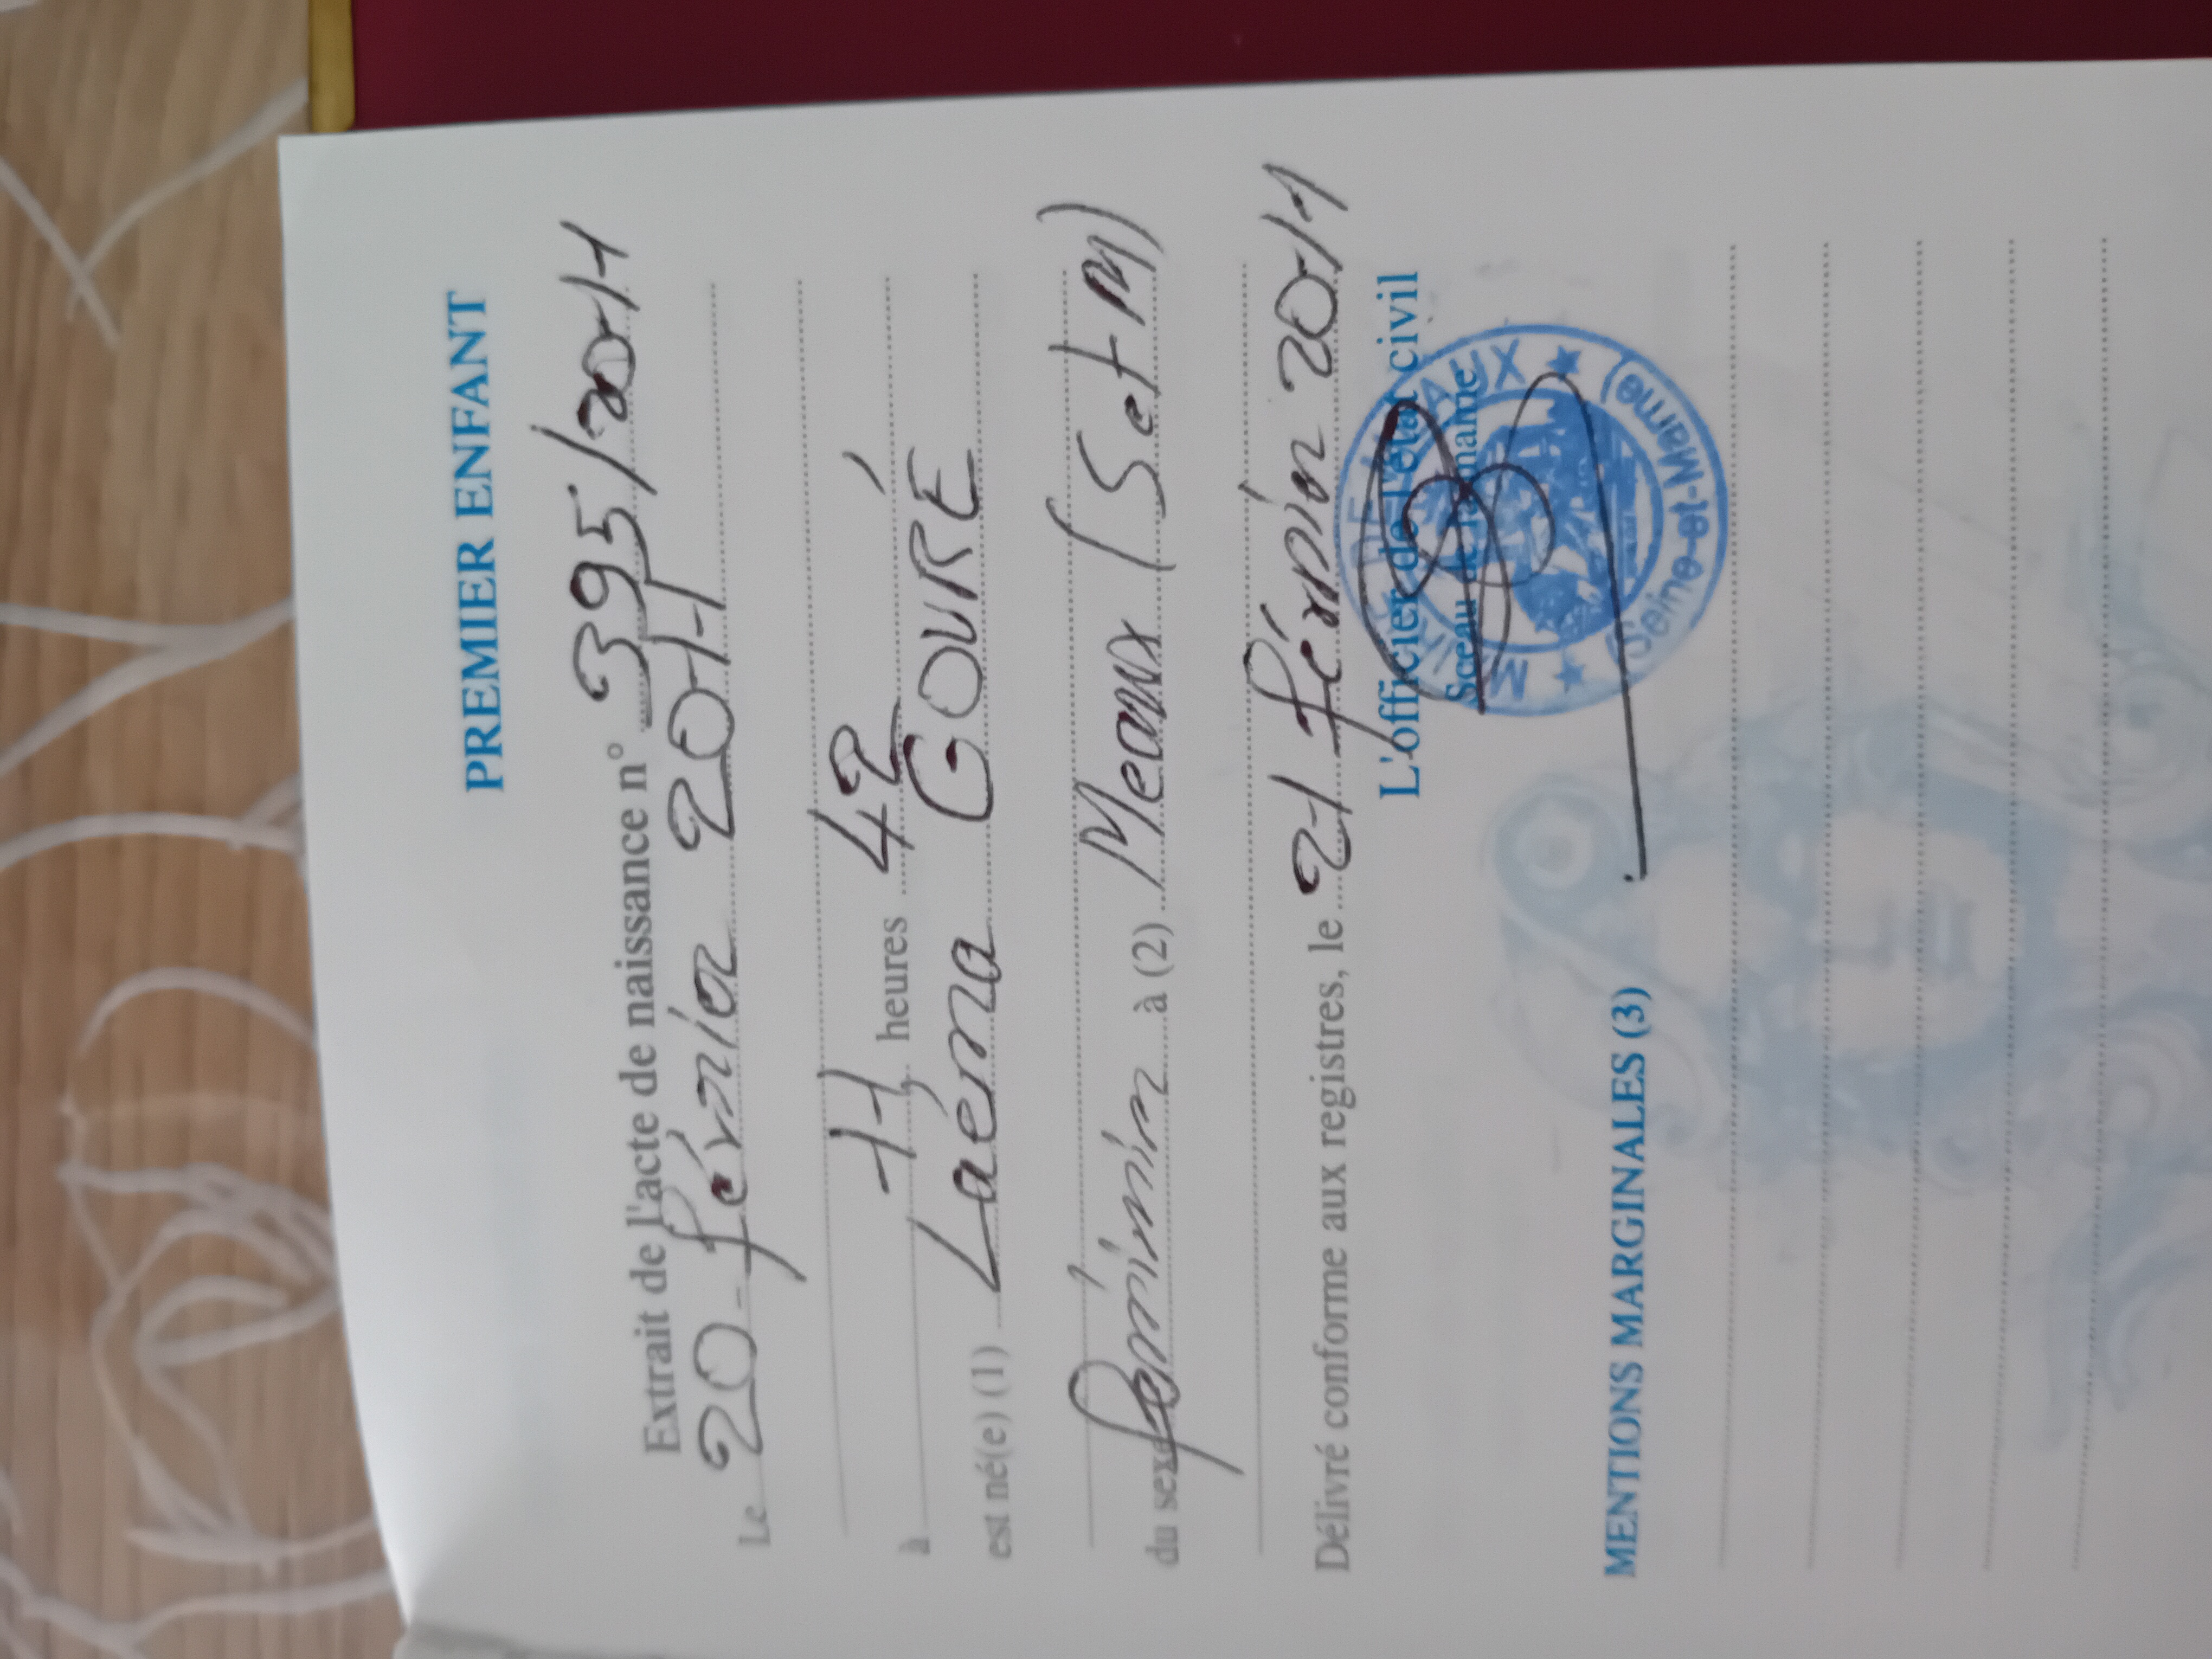 PREMIER ENFANT
Extrait de l'acte de naissance n° 395/2011
Le 20 février 2011
à 11 heures 42
est né(e) (1) Laéma GOURÉ
du sexe féminin à (2) Meaux (S et M)
Délivré conforme aux registres, le 21 février 2011
L'officier de l'état civil
Sceau de la mairie
MAIRIE DE MEAUX
(Seine-et-Marne)
MENTIONS MARGINALES (3)